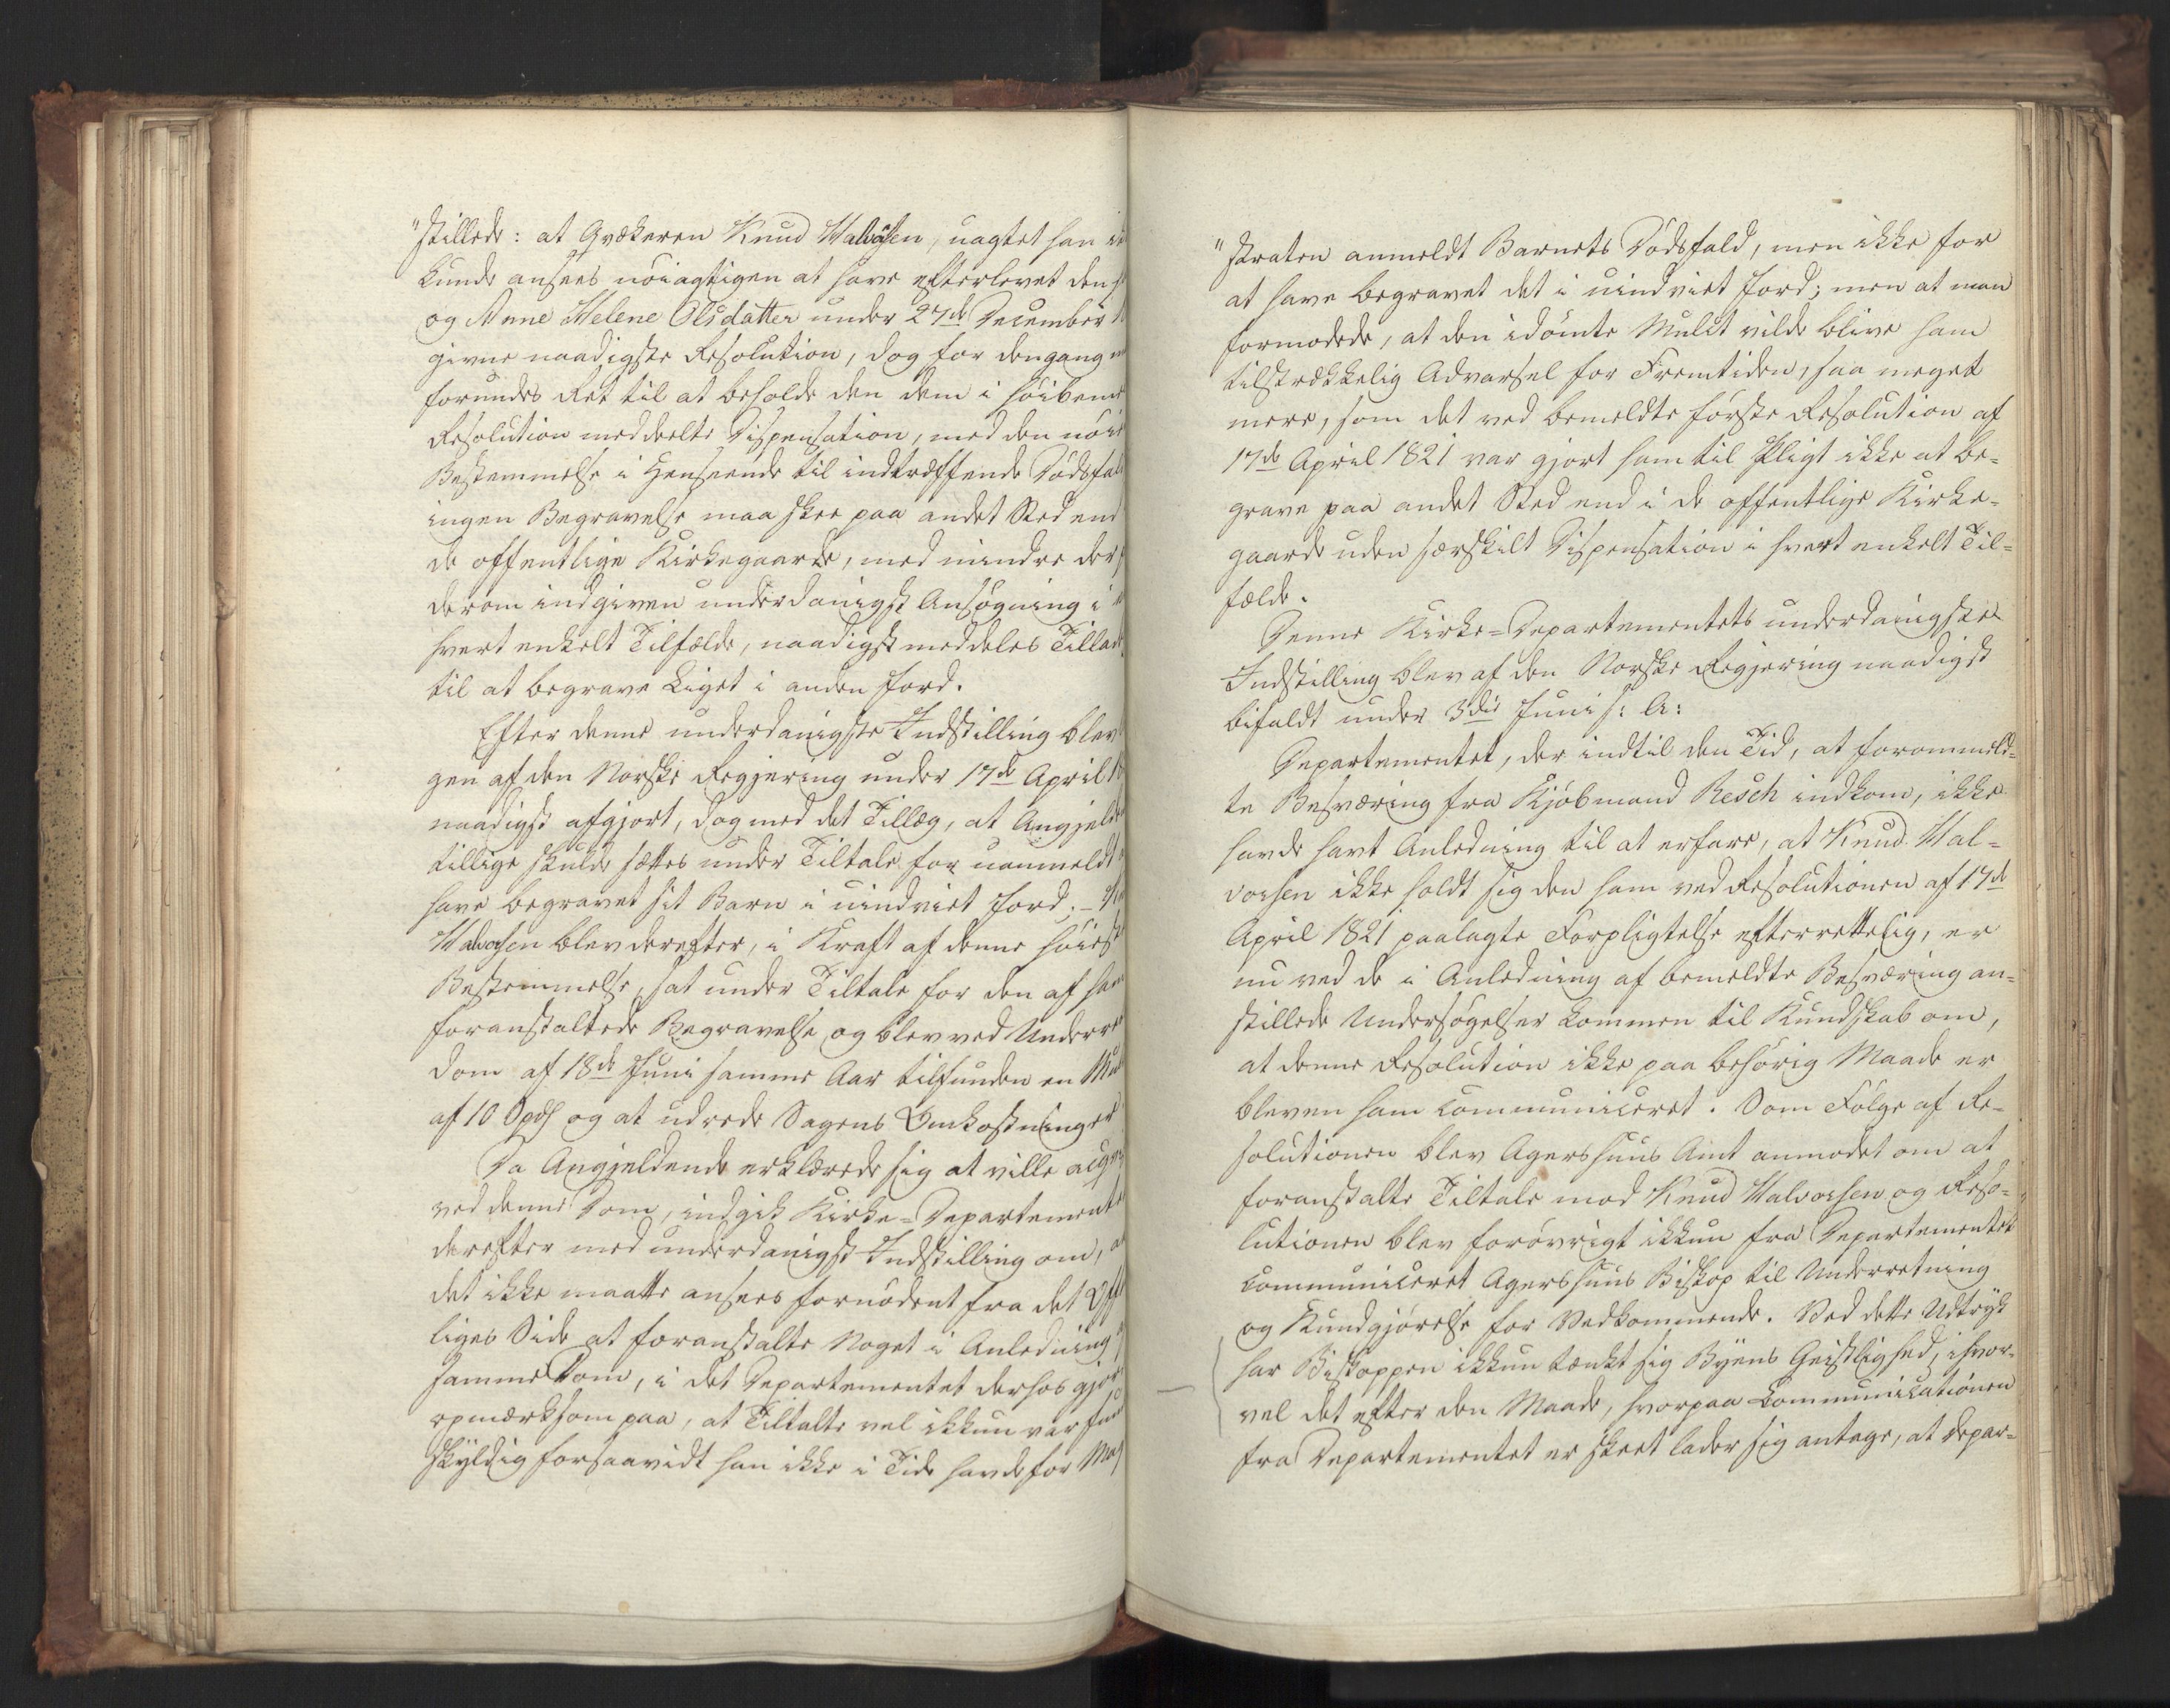 "stillede: at Qvækeren Knud Halvorsen, uagtet han
kunde ansees nöiagtigen at have efterlevet den
og Anne Helene Olsdatter under 27de December
givne naadigste Resolution, dog for dengang
forundes Ret til at beholde den dem i höibem
Resolution meddeelte Dispensation, med den nöie
Bestemmelse i Henseende til indtræffende Dödsfal
ingen Begravelse maa skee paa andet Sted end
de offentlige Kirkegaarde, med mindre der
derom indgiven underdanigst Ansögning i
hvert enkelt Tilfælde, naadigst meddeles Tillad
til at begrave Liget i anden Jord.
Efter denne underdanigste Indstilling blev
gen af den Norske Regjering under 17de April
naadigst afgjort, dog med det Tillæg, at Angjeld
tillige skulde sættes under Tiltale for uanmeldt
have begravet sit Barn i uindviet Jord. –
Halvorsen blev derefter, i Kraft af denne höieste
Bestemmelse, sat under Tiltale for den af ham
foranstaltede Begravelse og blev ved Underre
dom af 18de Juni samme Aar tilfunden en Mul
af 10 Spd og at udrede Sagens Omkostninger.
Da Angjeldende erklærede sig at ville acqvi
ved denne Dom, indgik Kirke-Departemente
derefter med underdanigst Indstilling om, at
det ikke maatte ansees fornödent fra det Offe
liges Side at foranstalte Noget i Anledning
samme Dom, i det Departementet derhos gjor
opmærksom paa, at Tiltalte vel ikkun var fun
skyldig forsaavidt han ikke i Tide havde for Mag
"straten anmeldt Barnets Dödsfald, men ikke for
at have begravet det i uindviet Jord; men at man
formodede, at den idömte Mulct vilde blive ham
tilstrækkelig Advarsel for Fremtiden, saa meget
mere, som det ved bemeldte förste Resolution af
17de April 1821 var gjort ham til Pligt ikke at be-
grave paa andet Sted end i de offentlige Kirke-
gaarde uden særskilt Dispensation i hvert enkelt Til-
fælde.
Denne Kirke-Departementets underdanigste
Indstilling blev af den Norske Regjering naadigst
bifaldt under 3die Juni s: A:
Departementet, der indtil den Tid, at forommeld-
te Besværing fra Kjöbmand Resch indkom, ikke
havde havt Anledning til at erfare, at Knud Hal-
vorsen ikke holdt sig den ham ved Resolutionen af 17de
April 1821 paalagte Forpligtelse efterrettelig, er
nu ved de i Anledning af bemeldte Besværing an-
stillede Undersögelser kommen til Kundskab om,
at denne Resolution ikke paa behörig Maade er
bleven ham communiceret. Som Fölge af Re-
solutionen blev Agershuus Amt anmodet om at
foranstalte Tiltale mod Knud Halvorsen og Reso-
lutionen blev forövrigt ikkun fra Departementet
communiceret Agershuus Biskop til Underretning
og Kundgjörelse for Vedkommende. Ved dette Udtryk
har Biskoppen ikkun tænkt sig Byens Geistlighed, ihvor-
vel det efter den Maade, hvorpaa Communicationen
fra Departementet er skeet lader sig antage, at Depar-